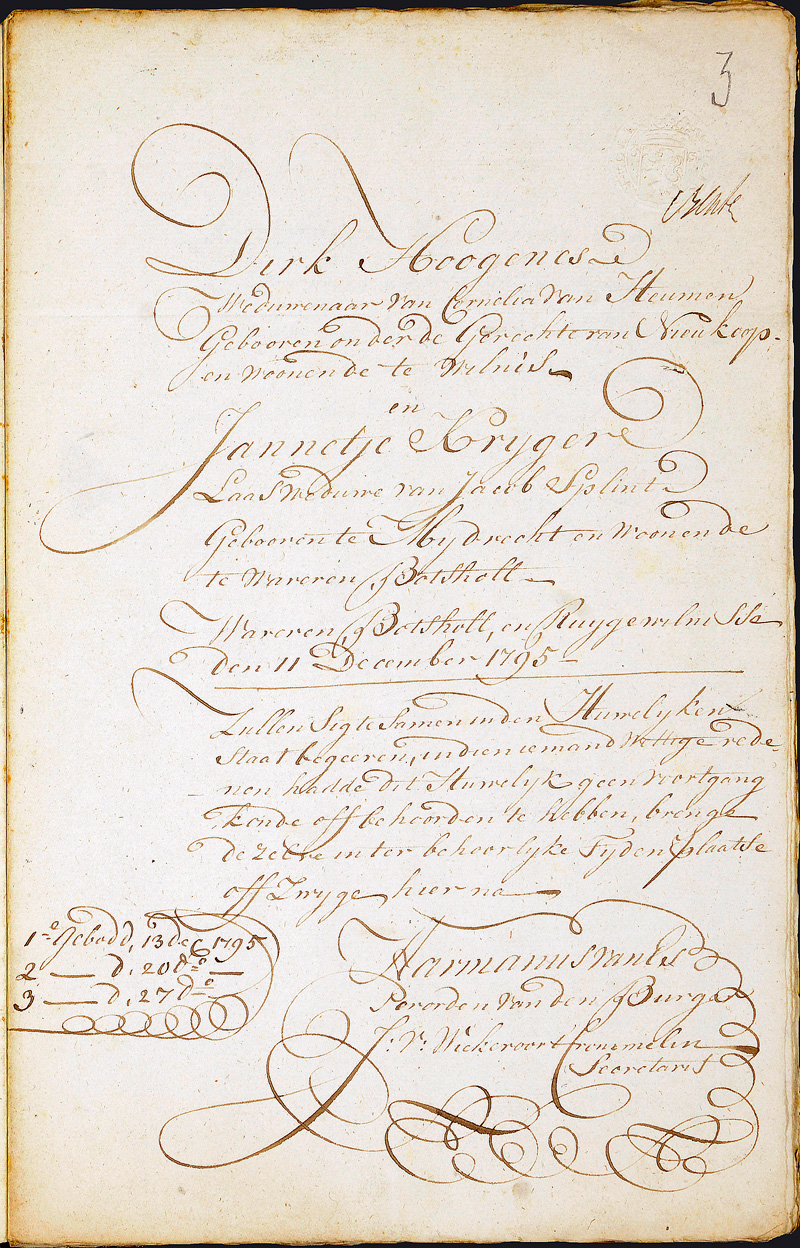 3
Dirk Hoogenes
Weduwenaar van Cornelia van Heumen
Gebooren onder de Gerechte van Nieukoop-
en woonende te Wilnis
en
Jannetje Kryger
Laast weduwe van Jacob Splint
Gebooren te Mydrecht en woonende
te Waveren Botsholl
Waveren, Botsholl, en Ruygewilnisse
den 11 December 1795
Zullen Sig te Samen in den Huwelyken
Staat begeeren, indien iemand Wettige rede-
nen hadde dit Huwelyk geen voortgang
konde off behoorden te hebben, brenge
de zelve in ter behoorlyke Tyd en plaatse
off Zwyge hier na
1e Gebodd, 13 dec 1795
2 — d. 20 do —
3 — d. 27 do
Harmanus van Es
Per orden van den Burger
J: V: Wickevoort Crommelin
Secretaris